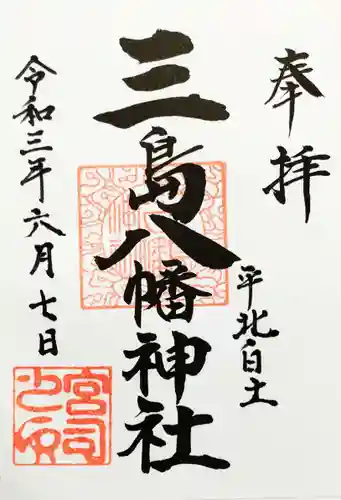 奉拝
平北白土
三島八幡神社
令和三年六月七日
宮司之印